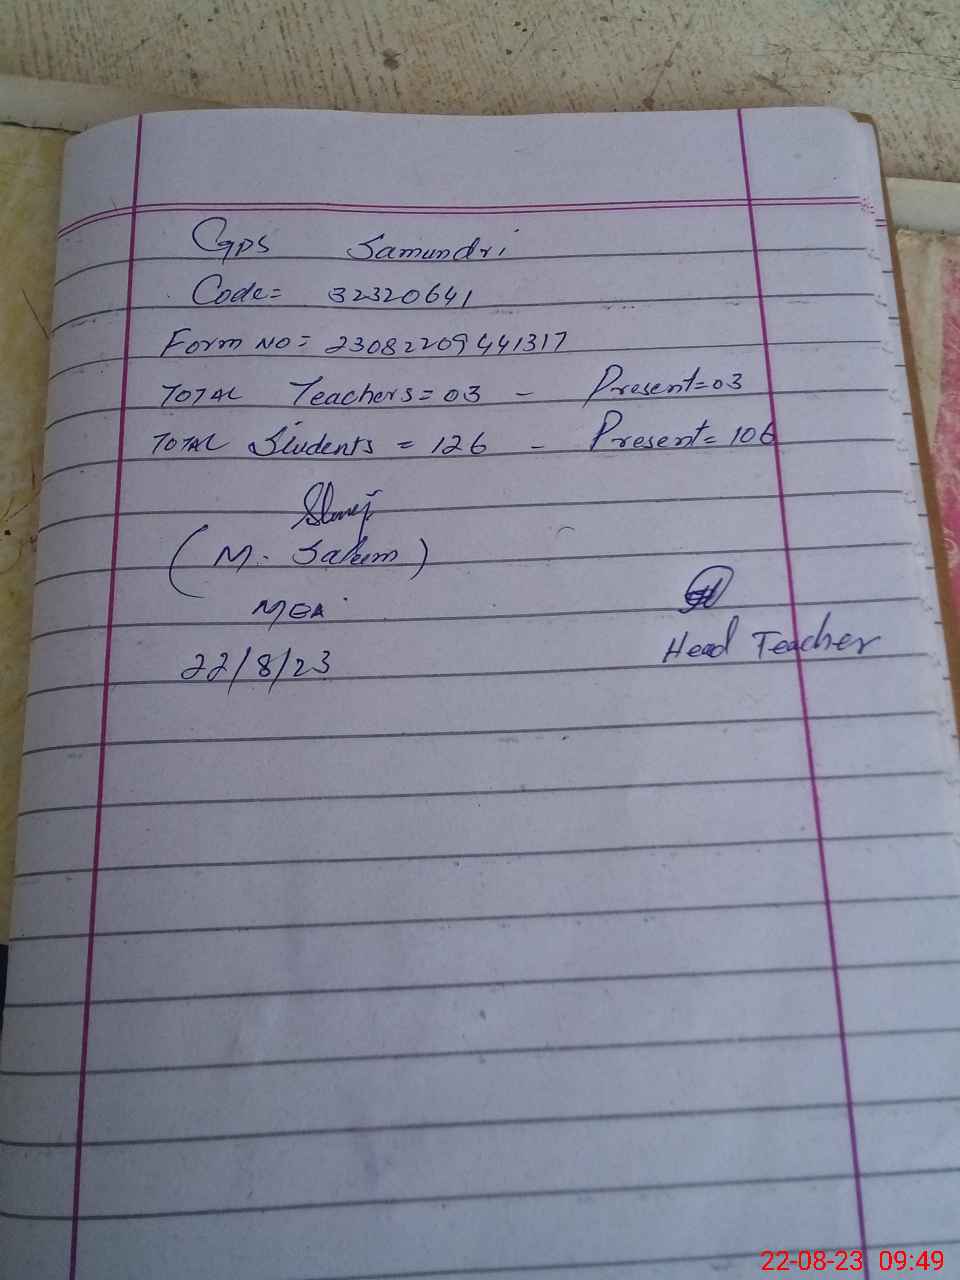 GPS Samundri
Code= 32320641
Form NO= 23082209441317
TOTAL Teachers= 03 - Present= 03
TOTAL Students = 126 - Present= 106
(M. Salem)
MEA
22/8/23
Head Teacher
22-08-23 09:49